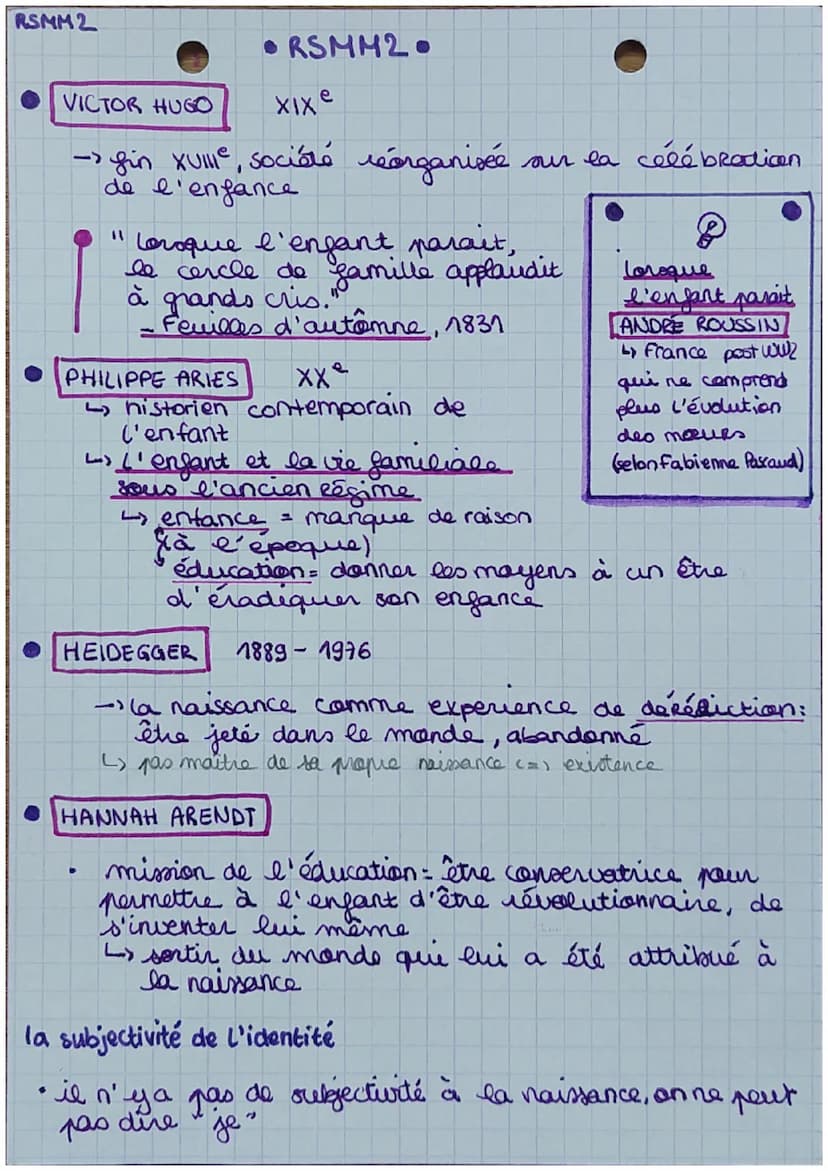 RSMM2
• RSMM2 •
• VICTOR HUGO XIXe
-> fin XVIIIe, société réorganisée sur la célébration
de l'enfance
" lorsque l'enfant parait,
le cercle de famille applaudit
à grands cris."
- Feuilles d'autômne, 1831
lorsque
l'enfant parait
ANDRÉ ROUSSIN
↳ France post WW2
qui ne comprend
plus l'évolution
des mœurs
(selon Fabienne Pascaud)
• PHILIPPE ARIES XXe
↳ historien contemporain de
l'enfant
↳ L'enfant et la vie familiale
sous l'ancien régime
↳ enfance = manque de raison
(à l'époque)
éducation = donner les moyens à un être
d'éradiquer son enfance
• HEIDEGGER 1889 - 1976
-> la naissance comme experience de
être jeté dans le monde, abandonné
↳ pas maître de sa propre naissance <=> existence
• HANNAH ARENDT
• mission de l'éducation = être conservatrice pour
permettre à l'enfant d'être révolutionnaire, de
s'inventer lui même
↳ sortir du monde qui lui a été attribué à
la naissance
la subjectivité de l'identité
• il n'y a pas de subjectivité à la naissance, on ne peut
pas dire "je"